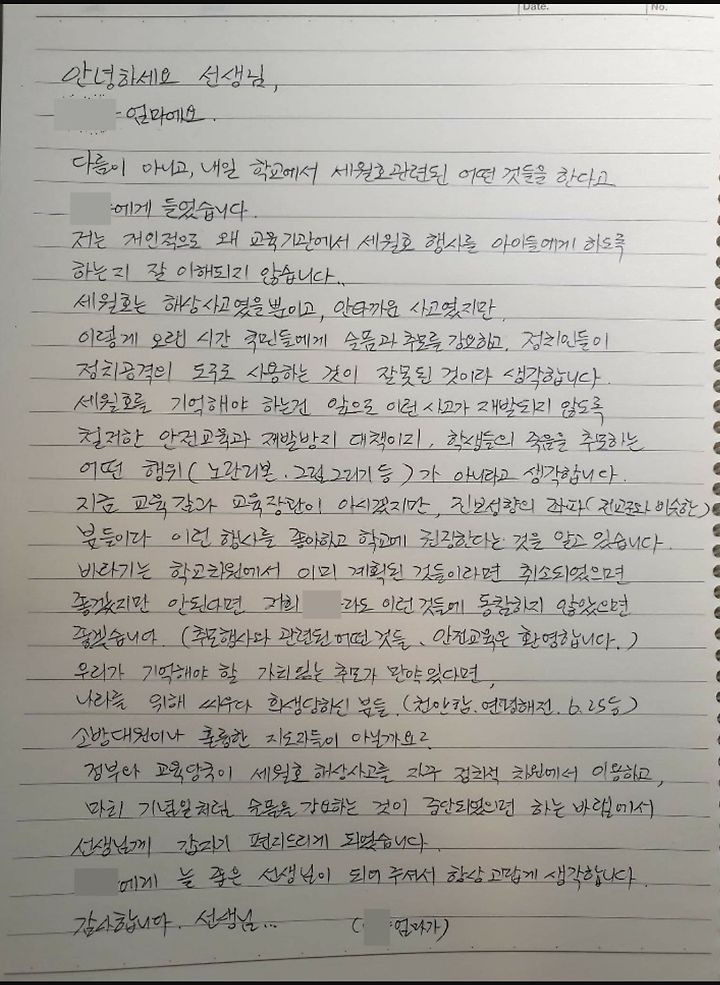 Date.
No.
안녕하세요 선생님,
엄마에요.
다름이 아니고, 내일 학교에서 세월호관련된 어떤 것들을 한다고
에게 들었습니다.
저는 개인적으로 왜 교육기관에서 세월호 행사를 아이들에게 하도록
하는지 잘 이해되지 않습니다..
세월호는 해상사고였을뿐이고, 안타까운 사고였지만,
이렇게 오랜 시간 국민들에게 슬픔과 추모를 강요하고, 정치인들이
정치공격의 도구로 사용하는 것이 잘못된 것이라 생각합니다.
세월호를 기억해야 하는건 앞으로 이런 사고가 재발되지 않도록
철저한 안전교육과 재발방지 대책이지, 학생들의 죽음을 추모하는
어떤 행위(노란리본, 그림그리기 등)가 아니라고 생각합니다.
지금 교육감과 교육장관이 아시겠지만, 진보성향의 좌파(전교조와 비슷한)
분들이다 이런 행사를 좋아하고 학교에 권장한다는 것을 알고 있습니다.
바라기는 학교차원에서 이미 계획된 것들이라면 취소되었으면
좋겠지만 안된다면 저희 라도 이런 것들에 동참하지 않았으면
좋겠습니다. (추모행사와 관련된 어떤 것들, 안전교육은 환영합니다.)
우리가 기억해야 할 가치있는 추모가 만약 있다면,
나라를 위해 싸우다 희생당하신 분들, (천안함, 연평해전, 6.25등)
소방대원이나 훌륭한 지도자들이 아닐까요?
정부와 교육당국이 세월호 해상사고를 자꾸 정치적 차원에서 이용하고,
마치 기념일처럼 슬픔을 강요하는 것이 중단되었으면 하는 바람에서
선생님께 갑자기 편지드리게 되었습니다.
에게 늘 좋은 선생님이 되어 주셔서 항상 고맙게 생각합니다.
감사합니다. 선생님...
( 엄마가)